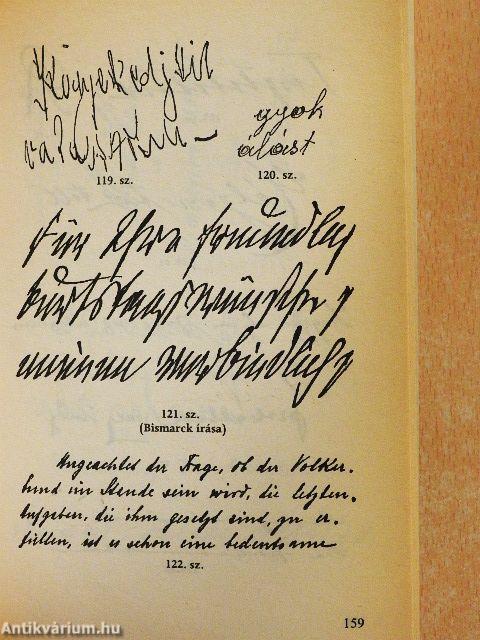 gyok
álást
119. sz.
120. sz.
Für Ihre freundlich
burtstagswünsche
meinen verbindlich
121. sz.
(Bismarck írása)
Ungeachtet der Frage, ob der Völker-
bund im Stande sein wird, die letzten
Aufgaben, die ihm gesetzt sind, zu er-
füllen, ist es schon eine bedeutsame
122. sz.
159
Antikvárium.hu